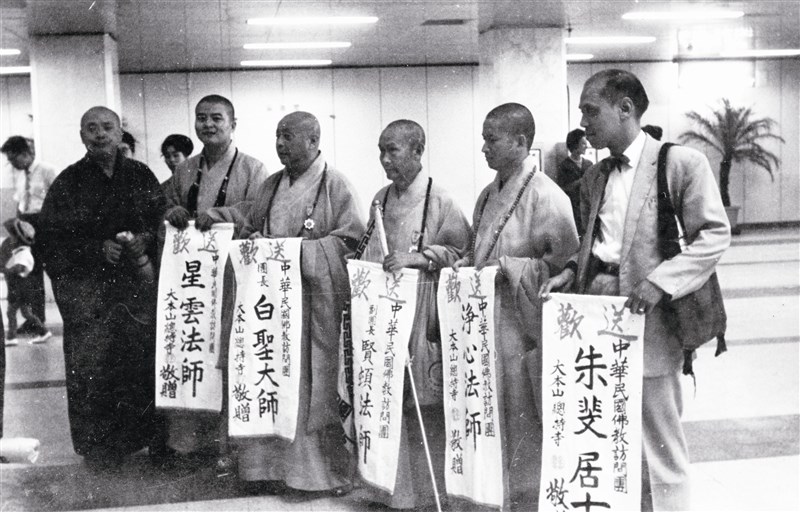 歡送
中華民國佛教訪問團
星雲法師
大本山總持寺 敬贈
歡送
中華民國佛教訪問團
團長 白聖大師
大本山總持寺 敬贈
歡送
中華民國佛教訪問團
副團長 賢頓法師
歡送
中華民國佛教訪問團
淨心法師
大本山總持寺 敬贈
歡送
中華民國佛教訪問團
朱斐居士
大本山總持寺 敬